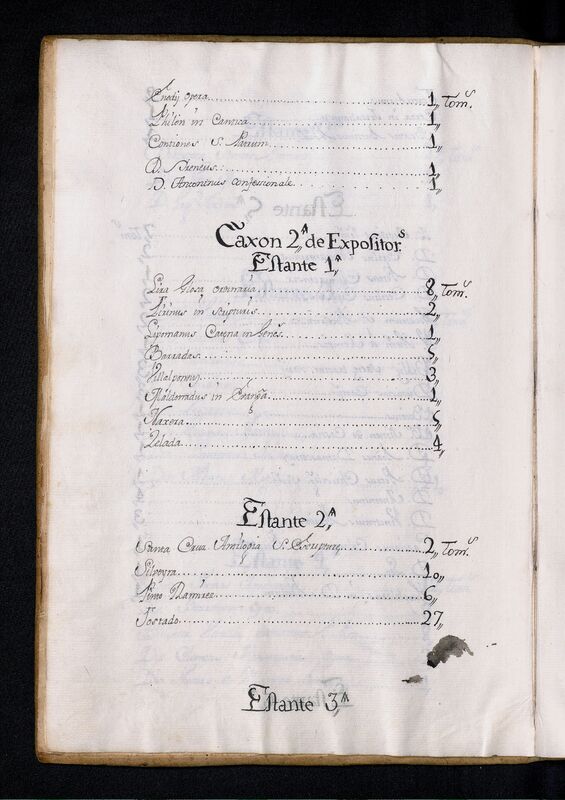 opera 1,, Tom.s
Philon in Cantica 1,,
Contiones S. Patrum 1,,
D. Yreneus 1,,
D. Antoninus confessionale 1,,
Caxon 2.ª de Expositor.s
Estante 1.ª
Lira Glosa ordinaria 8,, Tom.s
Tirinus in scripturis 2,,
Lipomanus Catena in Genes. 1,,
Barradas 5,,
Villalpando 3,,
Maldonadus in Evang.a 1,,
Naxera 5,,
Zelada 4,,
Estante 2.ª
Santa Cruz Antilogia S. Scripture 2,, Tom.s
Silveyra 10,,
Pinto Ramirez 6,,
Tostado 27,,
Estante 3.ª